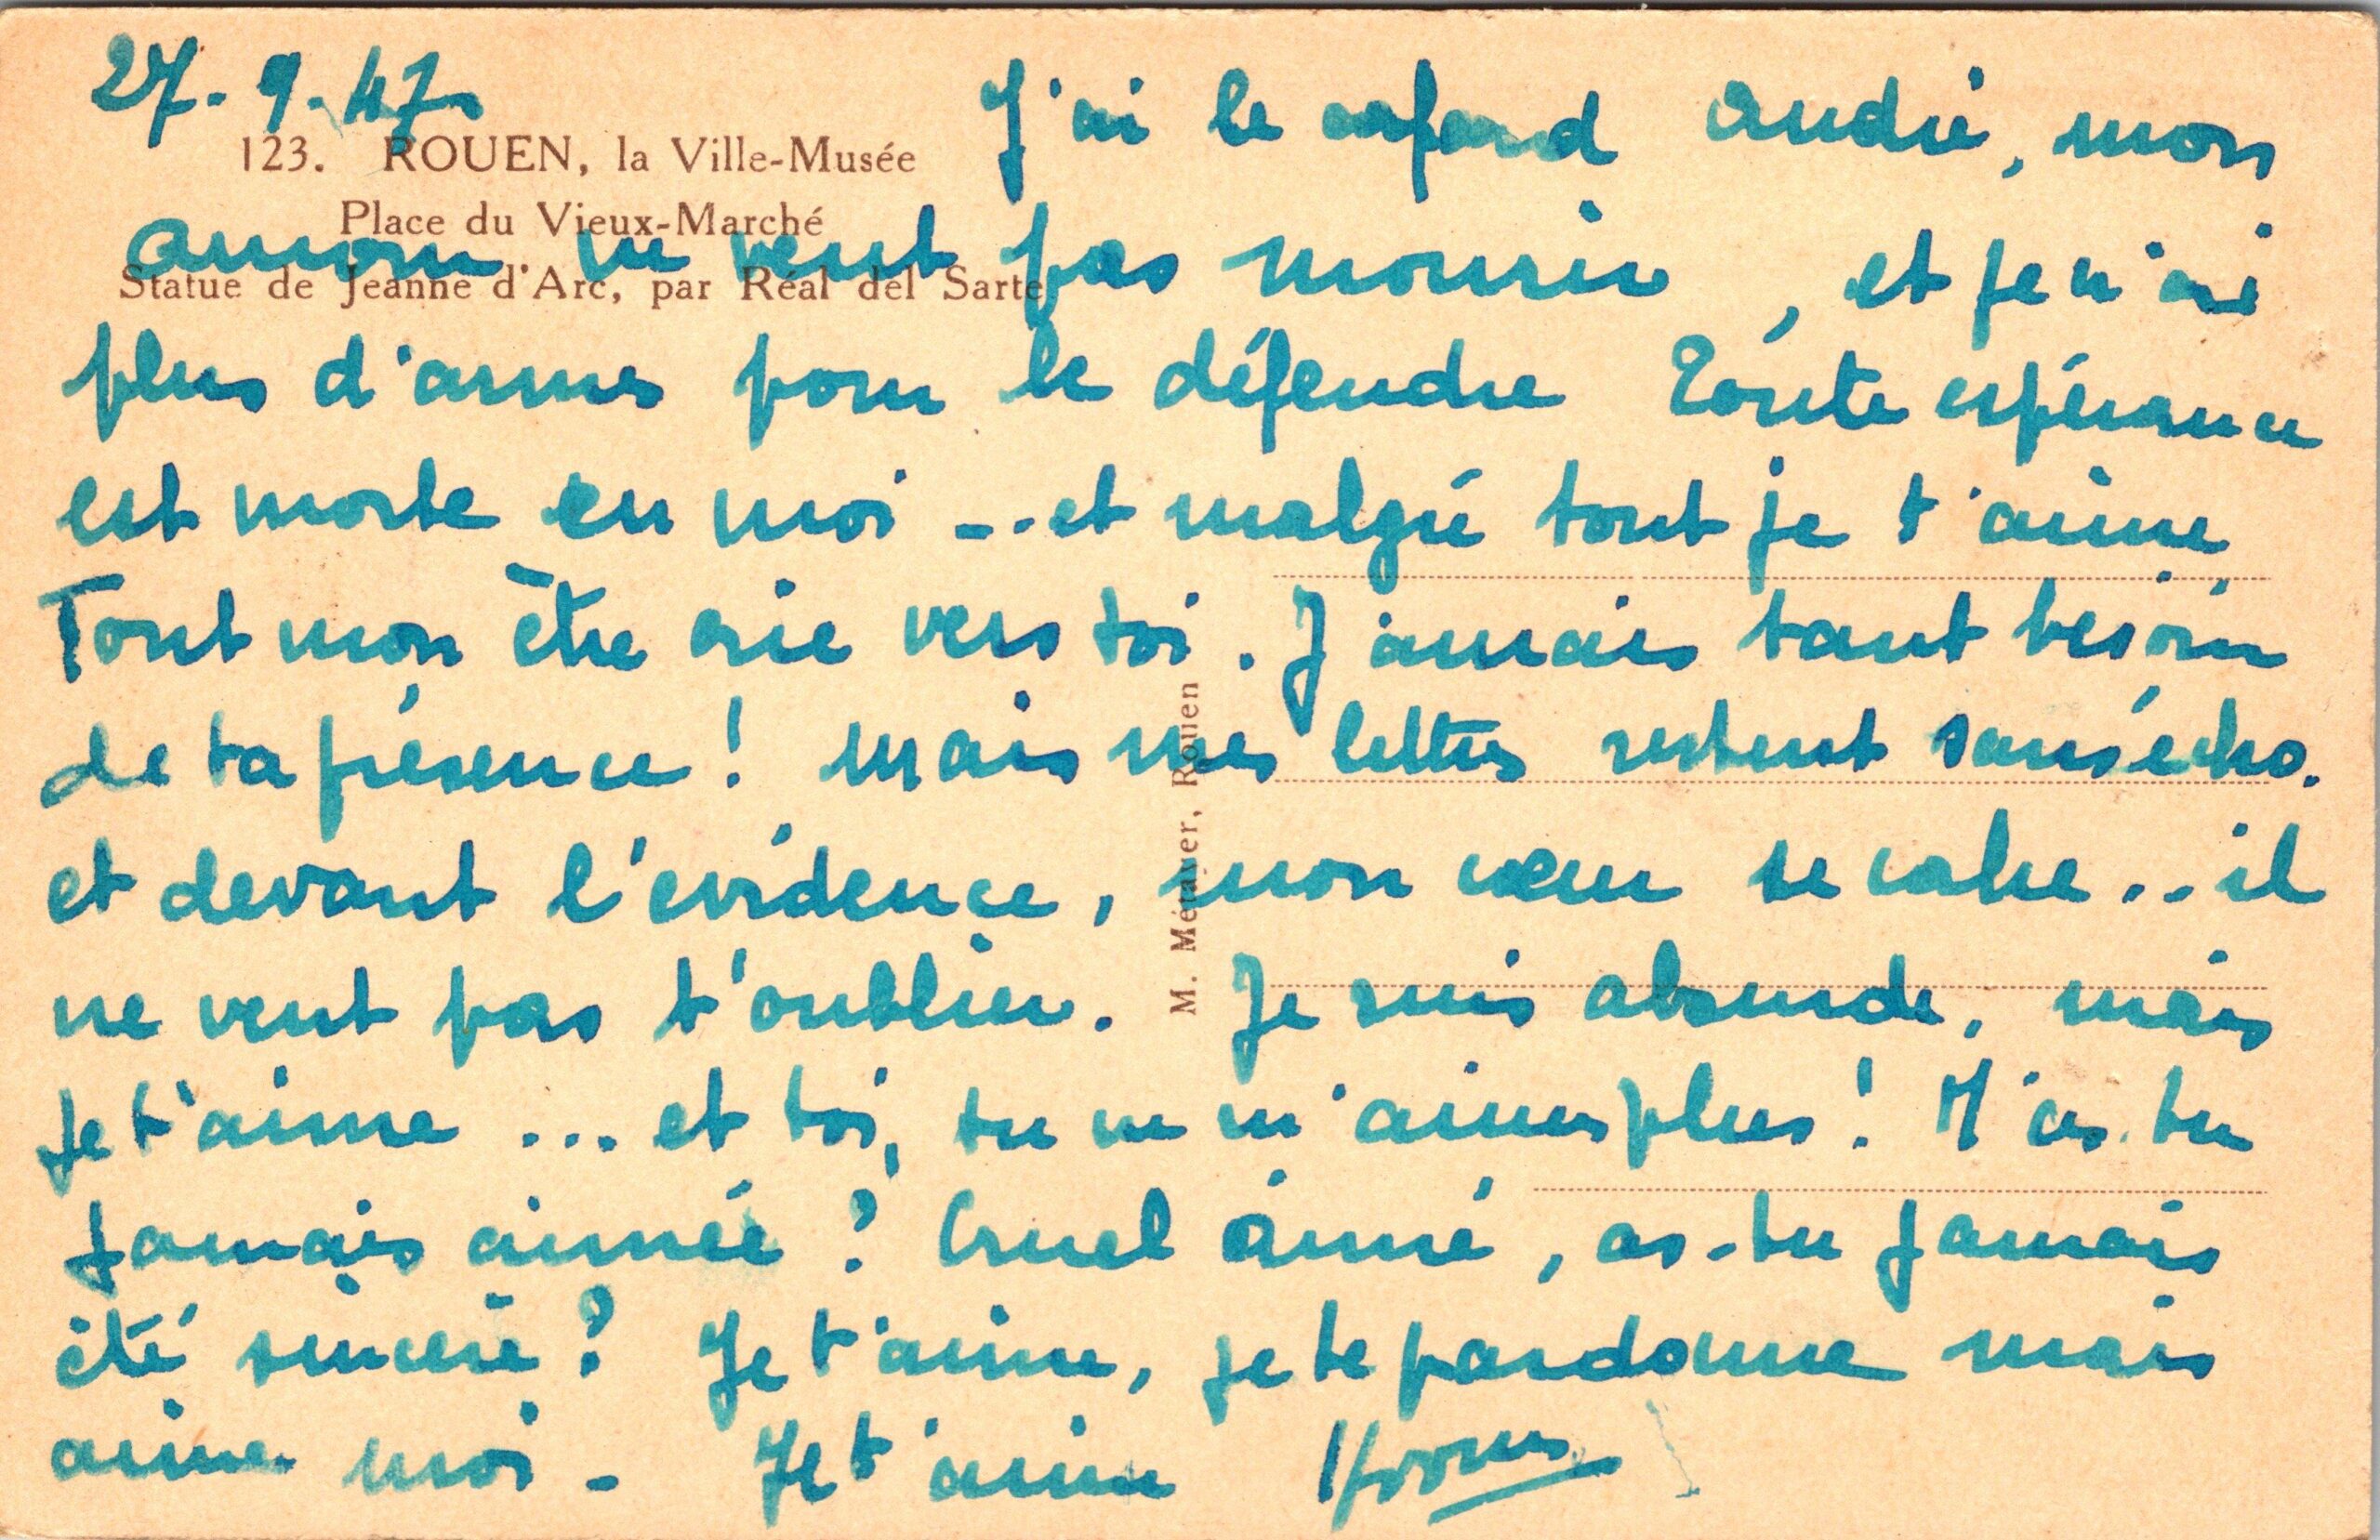 27-9-47
123. ROUEN, la Ville-Musée
Place du Vieux-Marché
Statue de Jeanne d'Arc, par Réal del Sarte
J'ai le cafard André, mon
amour ne veut pas mourir, et je n'ai
plus d'armes pour le défendre Toute espérance
est morte en moi -.. et malgré tout je t'aime
Tout mon être crie vers toi. Jamais tant besoin
de ta présence! Mais mes lettres restent sans écho.
et devant l'évidence, mon cœur se cabre.. il
ne veut pas t'oublier. Je suis absurde, mais
Je t'aime ... et toi, tu ne m'aimes plus! M'as-tu
Jamais aimée? Cruel aimé, as-tu Jamais
été sincère? Je t'aime, je te pardonne mais
aime moi - Je t'aime Yvonne
M. Métayer, Rouen